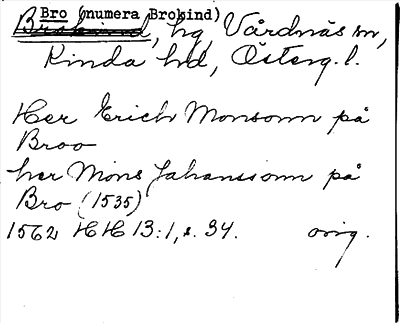 Bro (numera Brokind)
Brokind, hg Vårdnäs sn,
Kinda hd, Österg. l.
Her Erich Monsonn på
Broo
her Mons Johanssonn på
Bro (1535)
1562 HH 13:1, s. 34. orig.